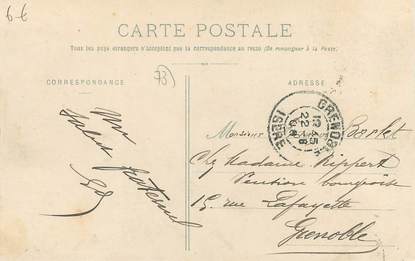 6-6
CARTE POSTALE
Tous les pays étrangers n'acceptent pas la correspondance au recto (Se renseigner à la Poste).
73
CORRESPONDANCE
ADRESSE
Mon
Salut fraternel
GRENOBLE
12 45
22 - 8
ISERE
Monsieur
Chez Madame Rippert
Pension bourgeoise
15, rue Lafayette
Grenoble